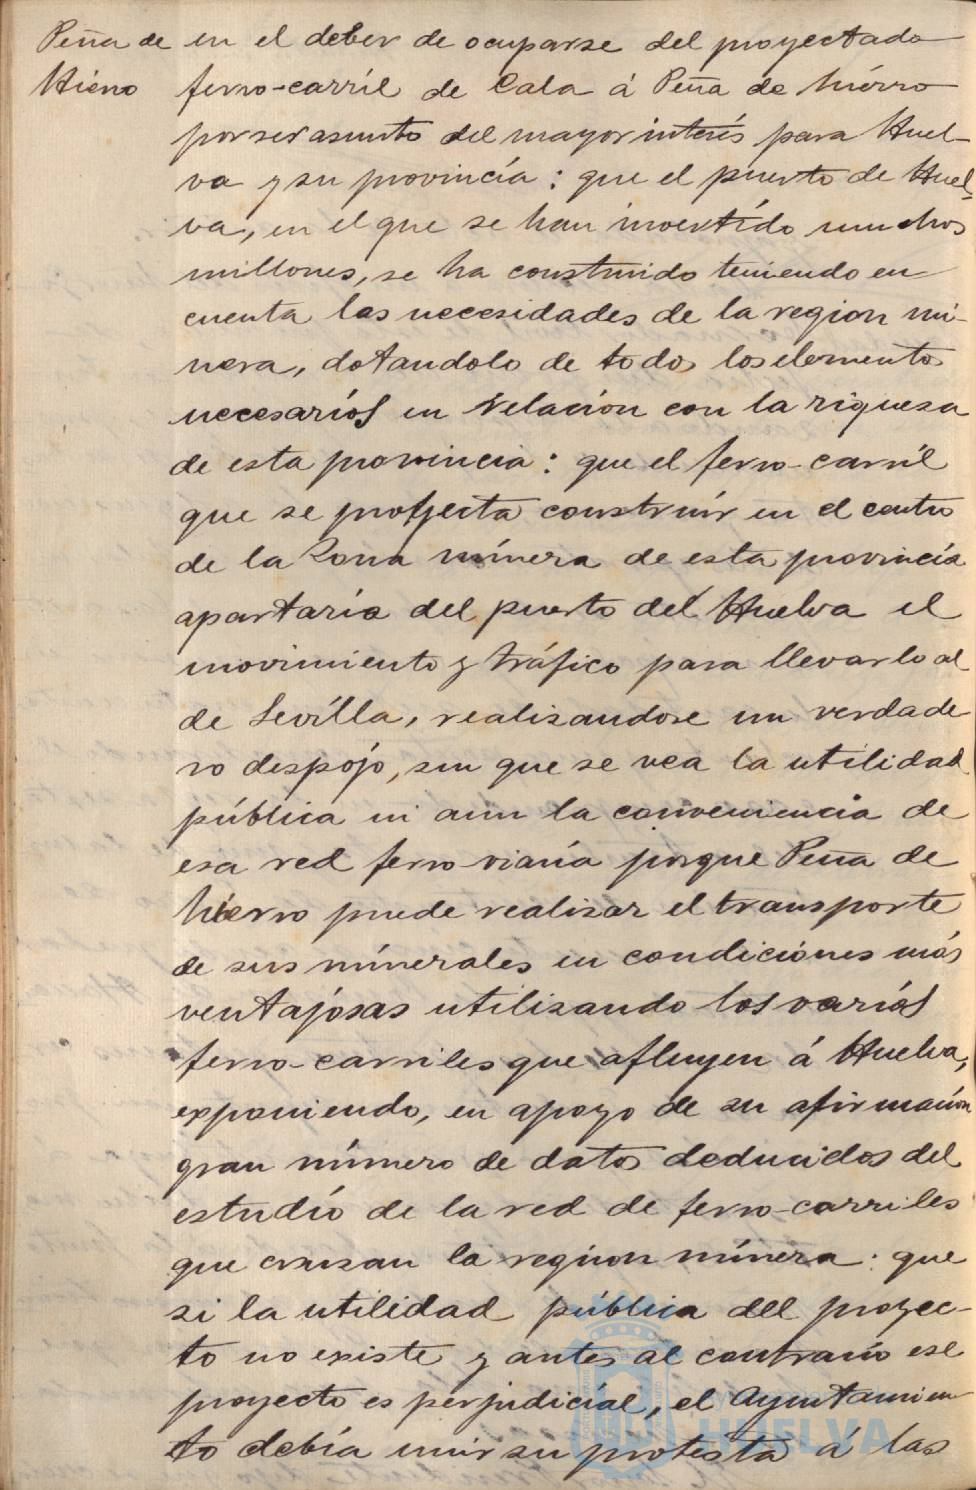 Peña de
Hiérro
en el deber de ocuparse del proyectado
ferro-carríl de Cala á Peña de hiérro
por ser asunto del mayor interés para Huel-
va y su provincía: que el puerto de Huel-
va, en el que se han invertído muchos
millones, se ha construido teniendo en
cuenta las necesidades de la region mi-
nera, dotandolo de todos los elementos
necesaríos en relación con la riqueza
de esta provincia: que el ferro-carríl
que se proyecta construír en el centro
de la Zona mínera de esta provincía
apartaría del puerto de Huelva el
movimiento y tráfico para llevarlo al
de Sevílla, realizandose un verdade
ro despójo, sin que se vea la utilidad
pública ni aun la conveniencia de
esa red ferro viaría porque Peña de
hierro puede realizar el transporte
de sus mínerales en condiciónes más
ventajósas utilizando los varíos
ferro-carriles que afluyen á Huelva,
exponiendo, en apoyo de su afirmación
gran número de datos deducidos del
estudío de la red de ferro-carriles
que cruzan la region mínera: que
si la utilidad pública del proyec-
to no existe y antes al contrario ese
proyecto es perjudicíal, el Ayuntamien
to debía unir su protesta á las
HUELVA